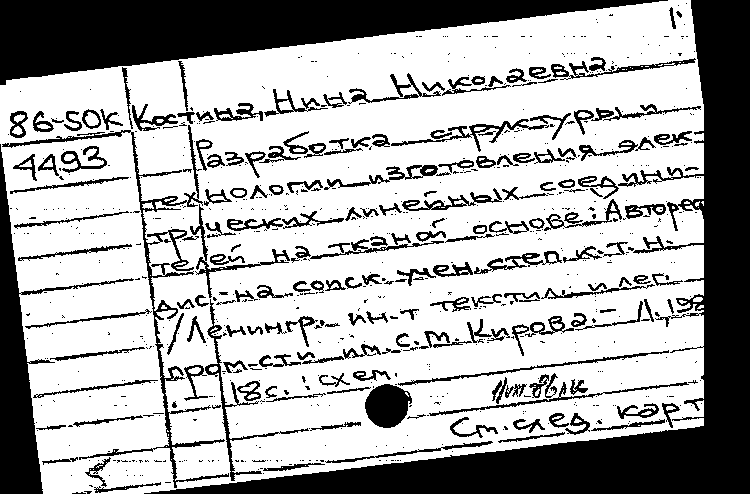 1.
86-50К Костина, Нина Николаевна.
4493 Разработка структуры и
технологии изготовления элек-
трических линейных соедини-
телей на тканой основе: Авторе
дис. на соиск. учен. степ. к. т. н.
/Ленингр. ин-т текстил. и лег.
пром-сти им. С. М. Кирова. - Л., 198
18с. : схем.
См. след. карт